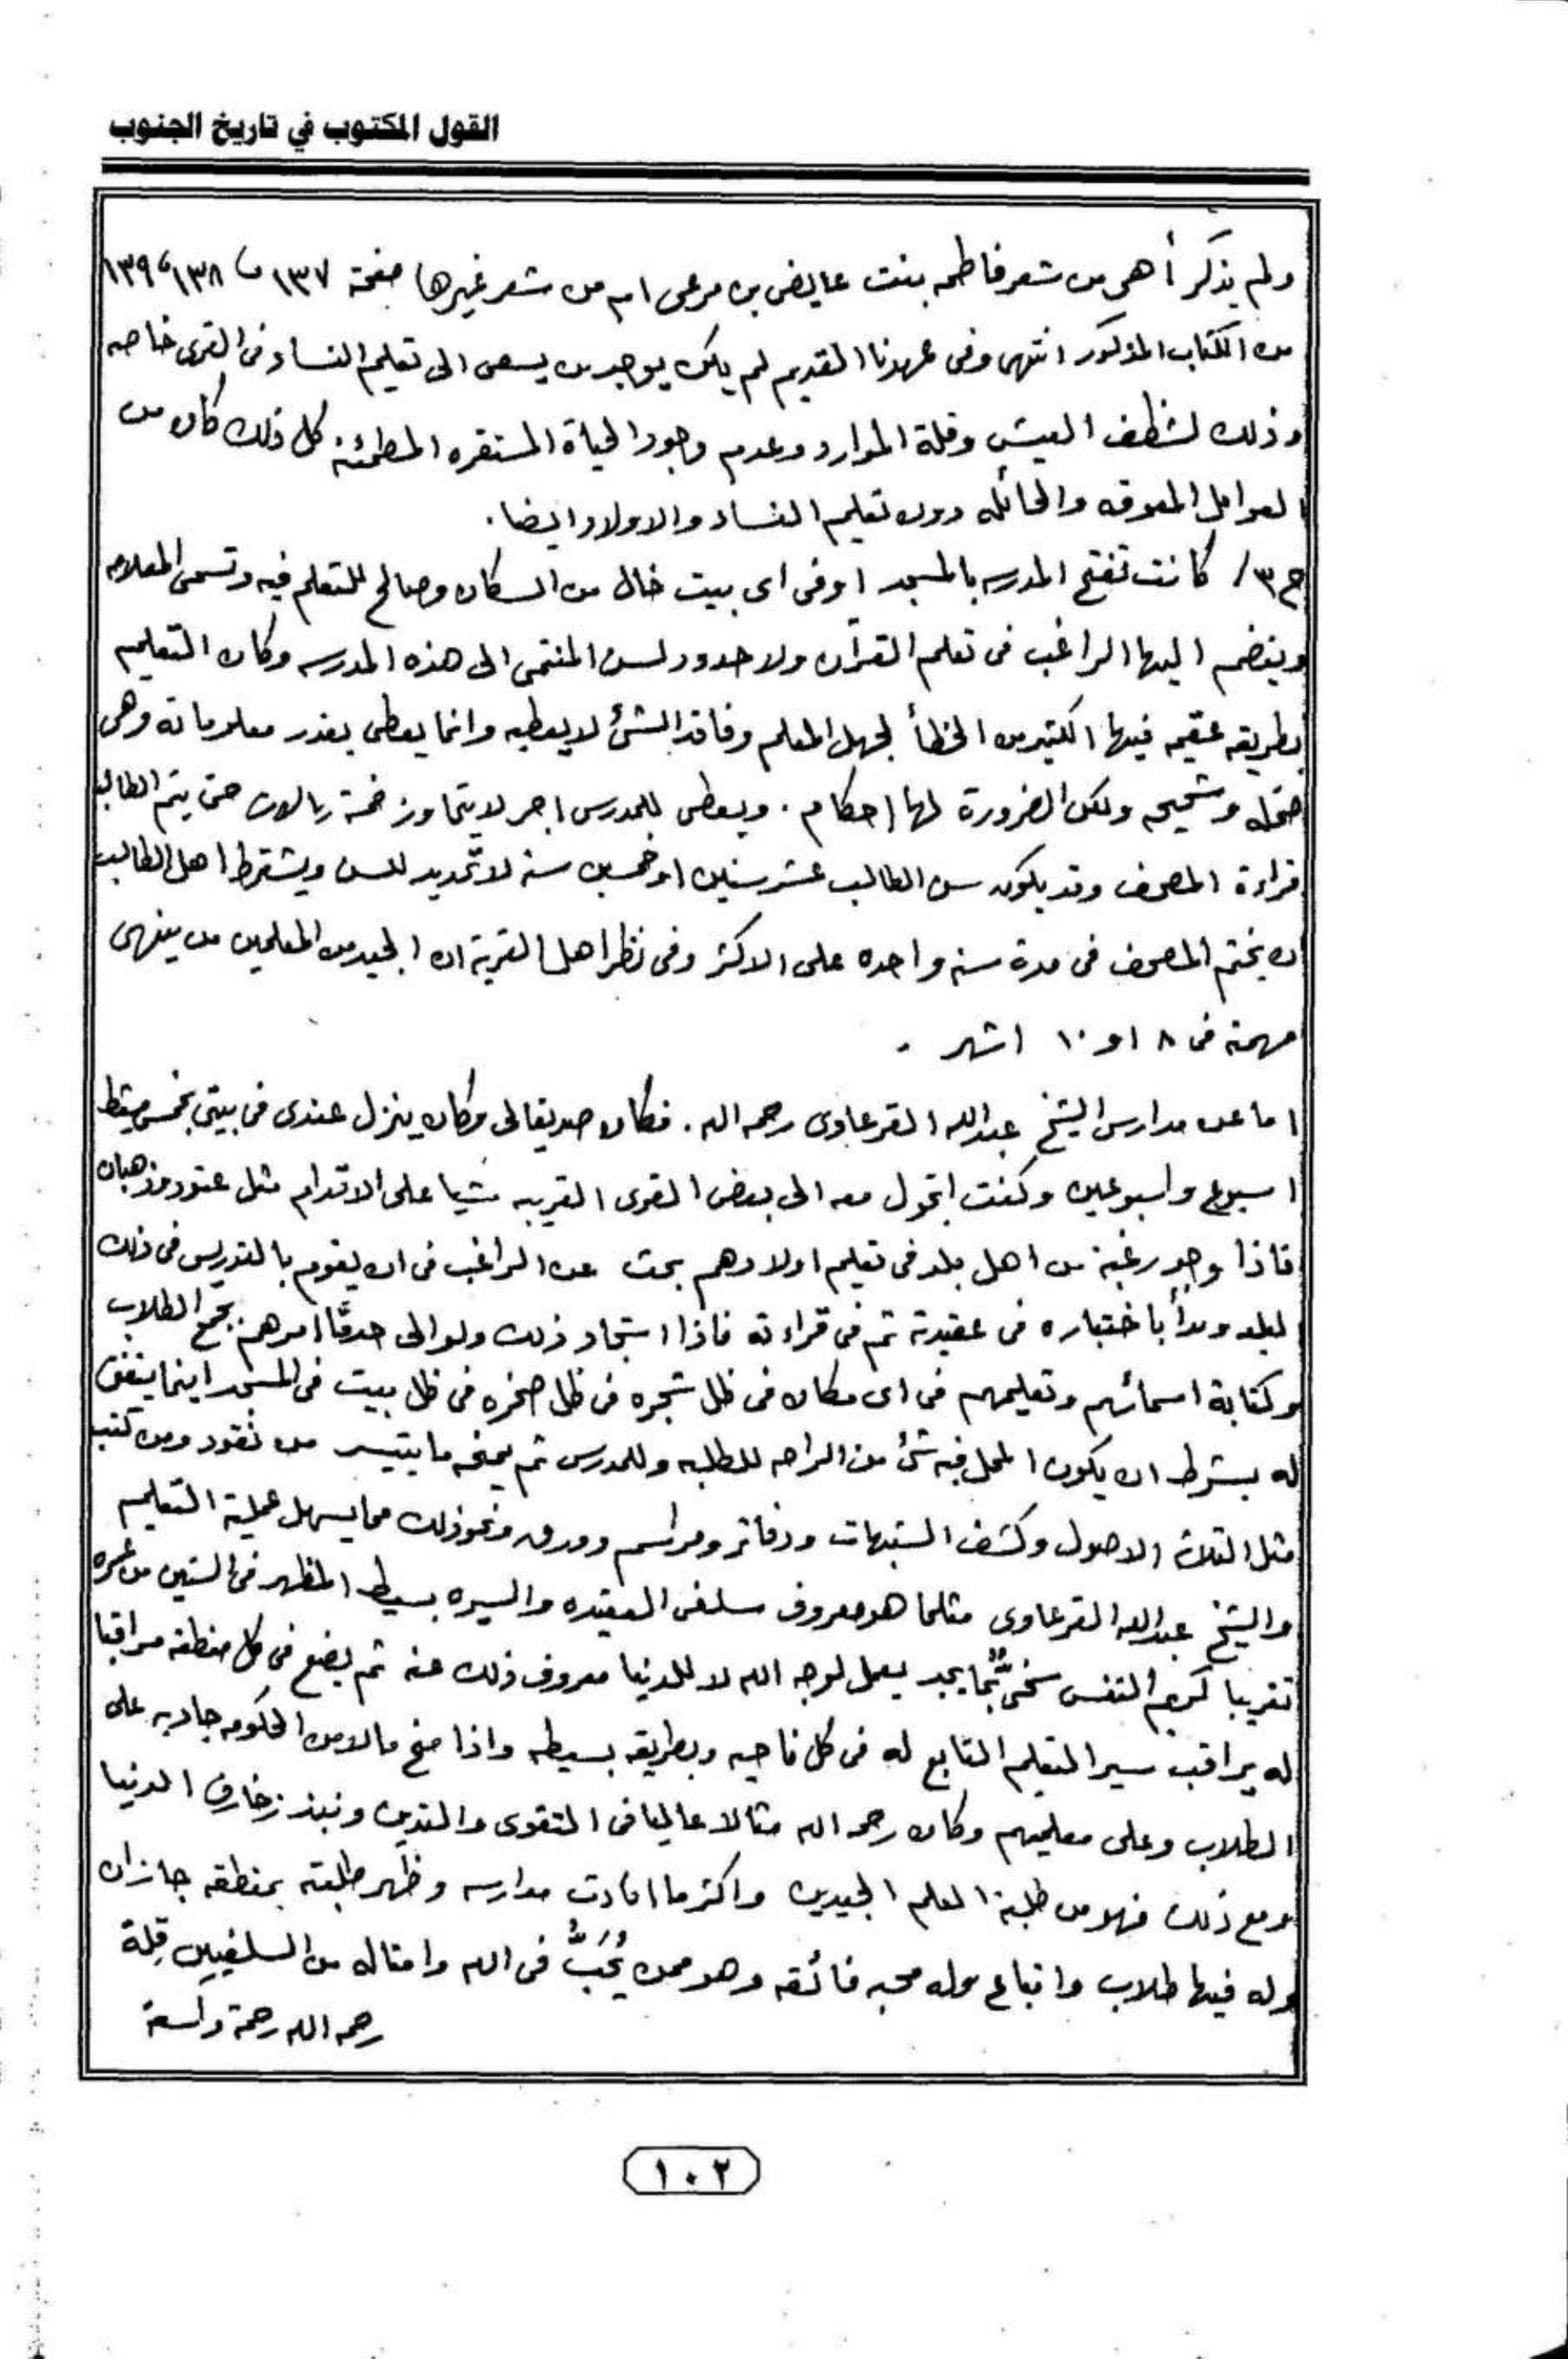 القول المكتوب في تاريخ الجنوب
ولم يذكر أهي من شعر فاطمه بنت عايض بن مرعى ام من شعر غيرها صفحة ١٣٧ ، ١٣٨ ، ١٣٩
من الكتاب المذكور انتهى وفى عهدنا القديم لم يكن يوجد من يسعى الى تعليم النساء فى القرى خاصه
وذلك لشظف العيش وقلة الموارد وعدم وجود الحياة المستقره المطمئنه كل ذلك كان من
العوامل المعوقه والحائله دون تعليم النساء والاولاد ايضا .
ج٣/ كانت تفتح المدرسه بالمسجد او فى اى بيت خال من السكان وصالح للتعلم فيه وتسمى المعلامه
وينضم اليها الراغب فى تعلم القرآن ولا حدود لسن المنتمى الى هذه المدرسه وكان التعليم
بطريقه عقيمه فيها الكثير من الخطأ لجهل المعلم وفاقد الشئ لا يعطيه وانما يعطى بقدر معلوماته وهى
ضحله وشحيحه ولكن الضرورة لها احكام . ويعطى للمدرس اجر لا يتجاوز خمسة ريالات حتى يتم الطالب
قراءة المصحف وقد يكون سن الطالب عشر سنين او خمسين سنه لا تحديد للسن ويشترط اهل الطالب
ان يختم المصحف فى مدة سنه واحده على الاكثر وفى نظر اهل القرية ان الجيد من المعلمين من ينهى
مهمته فى ٨ او ١٠ اشهر .
اما عن مدارس الشيخ عبدالله القرعاوى رحمه الله . فكان صديقا لى وكان ينزل عندى فى بيتى بخميس مشيط
اسبوع واسبوعين وكنت اتجول معه الى بعض القرى القريبه مشيا على الاقدام مثل عتود وذهبان
فاذا وجد رغبة من اهل بلد فى تعليم اولادهم بحث عن الراغب فى ان يقوم بالتدريس فى ذلك
البلد وبدأ باختباره فى عقيدته ثم فى قراءته فاذا استجاد ذلك ولو الى حد ما امرهم بجمع الطلاب
وكتابة اسمائهم وتعليمهم فى اى مكان فى ظل شجره فى ظل صخره فى ظل بيت فى المسجد اينما يتفق
له بشرط ان يكون المحل فيه شئ من الراحه للطلبه وللمدرس ثم يمنحه ما يتيسر من نقود ومن كتب
مثل الثلاثة الاصول وكشف الشبهات ودفاتر ومراسم وورق ونحو ذلك مما يسهل عملية التعليم
والشيخ عبدالله القرعاوى مثلما هو معروف سلفى العقيده والسيره بسيط المظهر فى الستين من عمره
تقريبا كريم النفس سخيٌّ بما يجد يعمل لوجه الله لا للدنيا معروف ذلك عنه ثم يضع فى كل منطقه مراقبا
له يراقب سير التعليم التابع له فى كل ناحيه وبطريقه بسيطه واذا منح مالا من الحكومه جاد به على
الطلاب وعلى معلميهم وكان رحمه الله مثالا عاليا فى التقوى والتدين ونبذ زخارف الدنيا
ومع ذلك فهو من طلبة العلم الجيدين واكثر ما افادت مدارسه وظهر طلبته بمنطقه جازان
وله فيها طلاب واتباع وله محبه فائقه وهو ممن يُحَبُّ فى الله وامثاله من السلفيين قِلة
رحمه الله رحمة واسعة
١٠٢